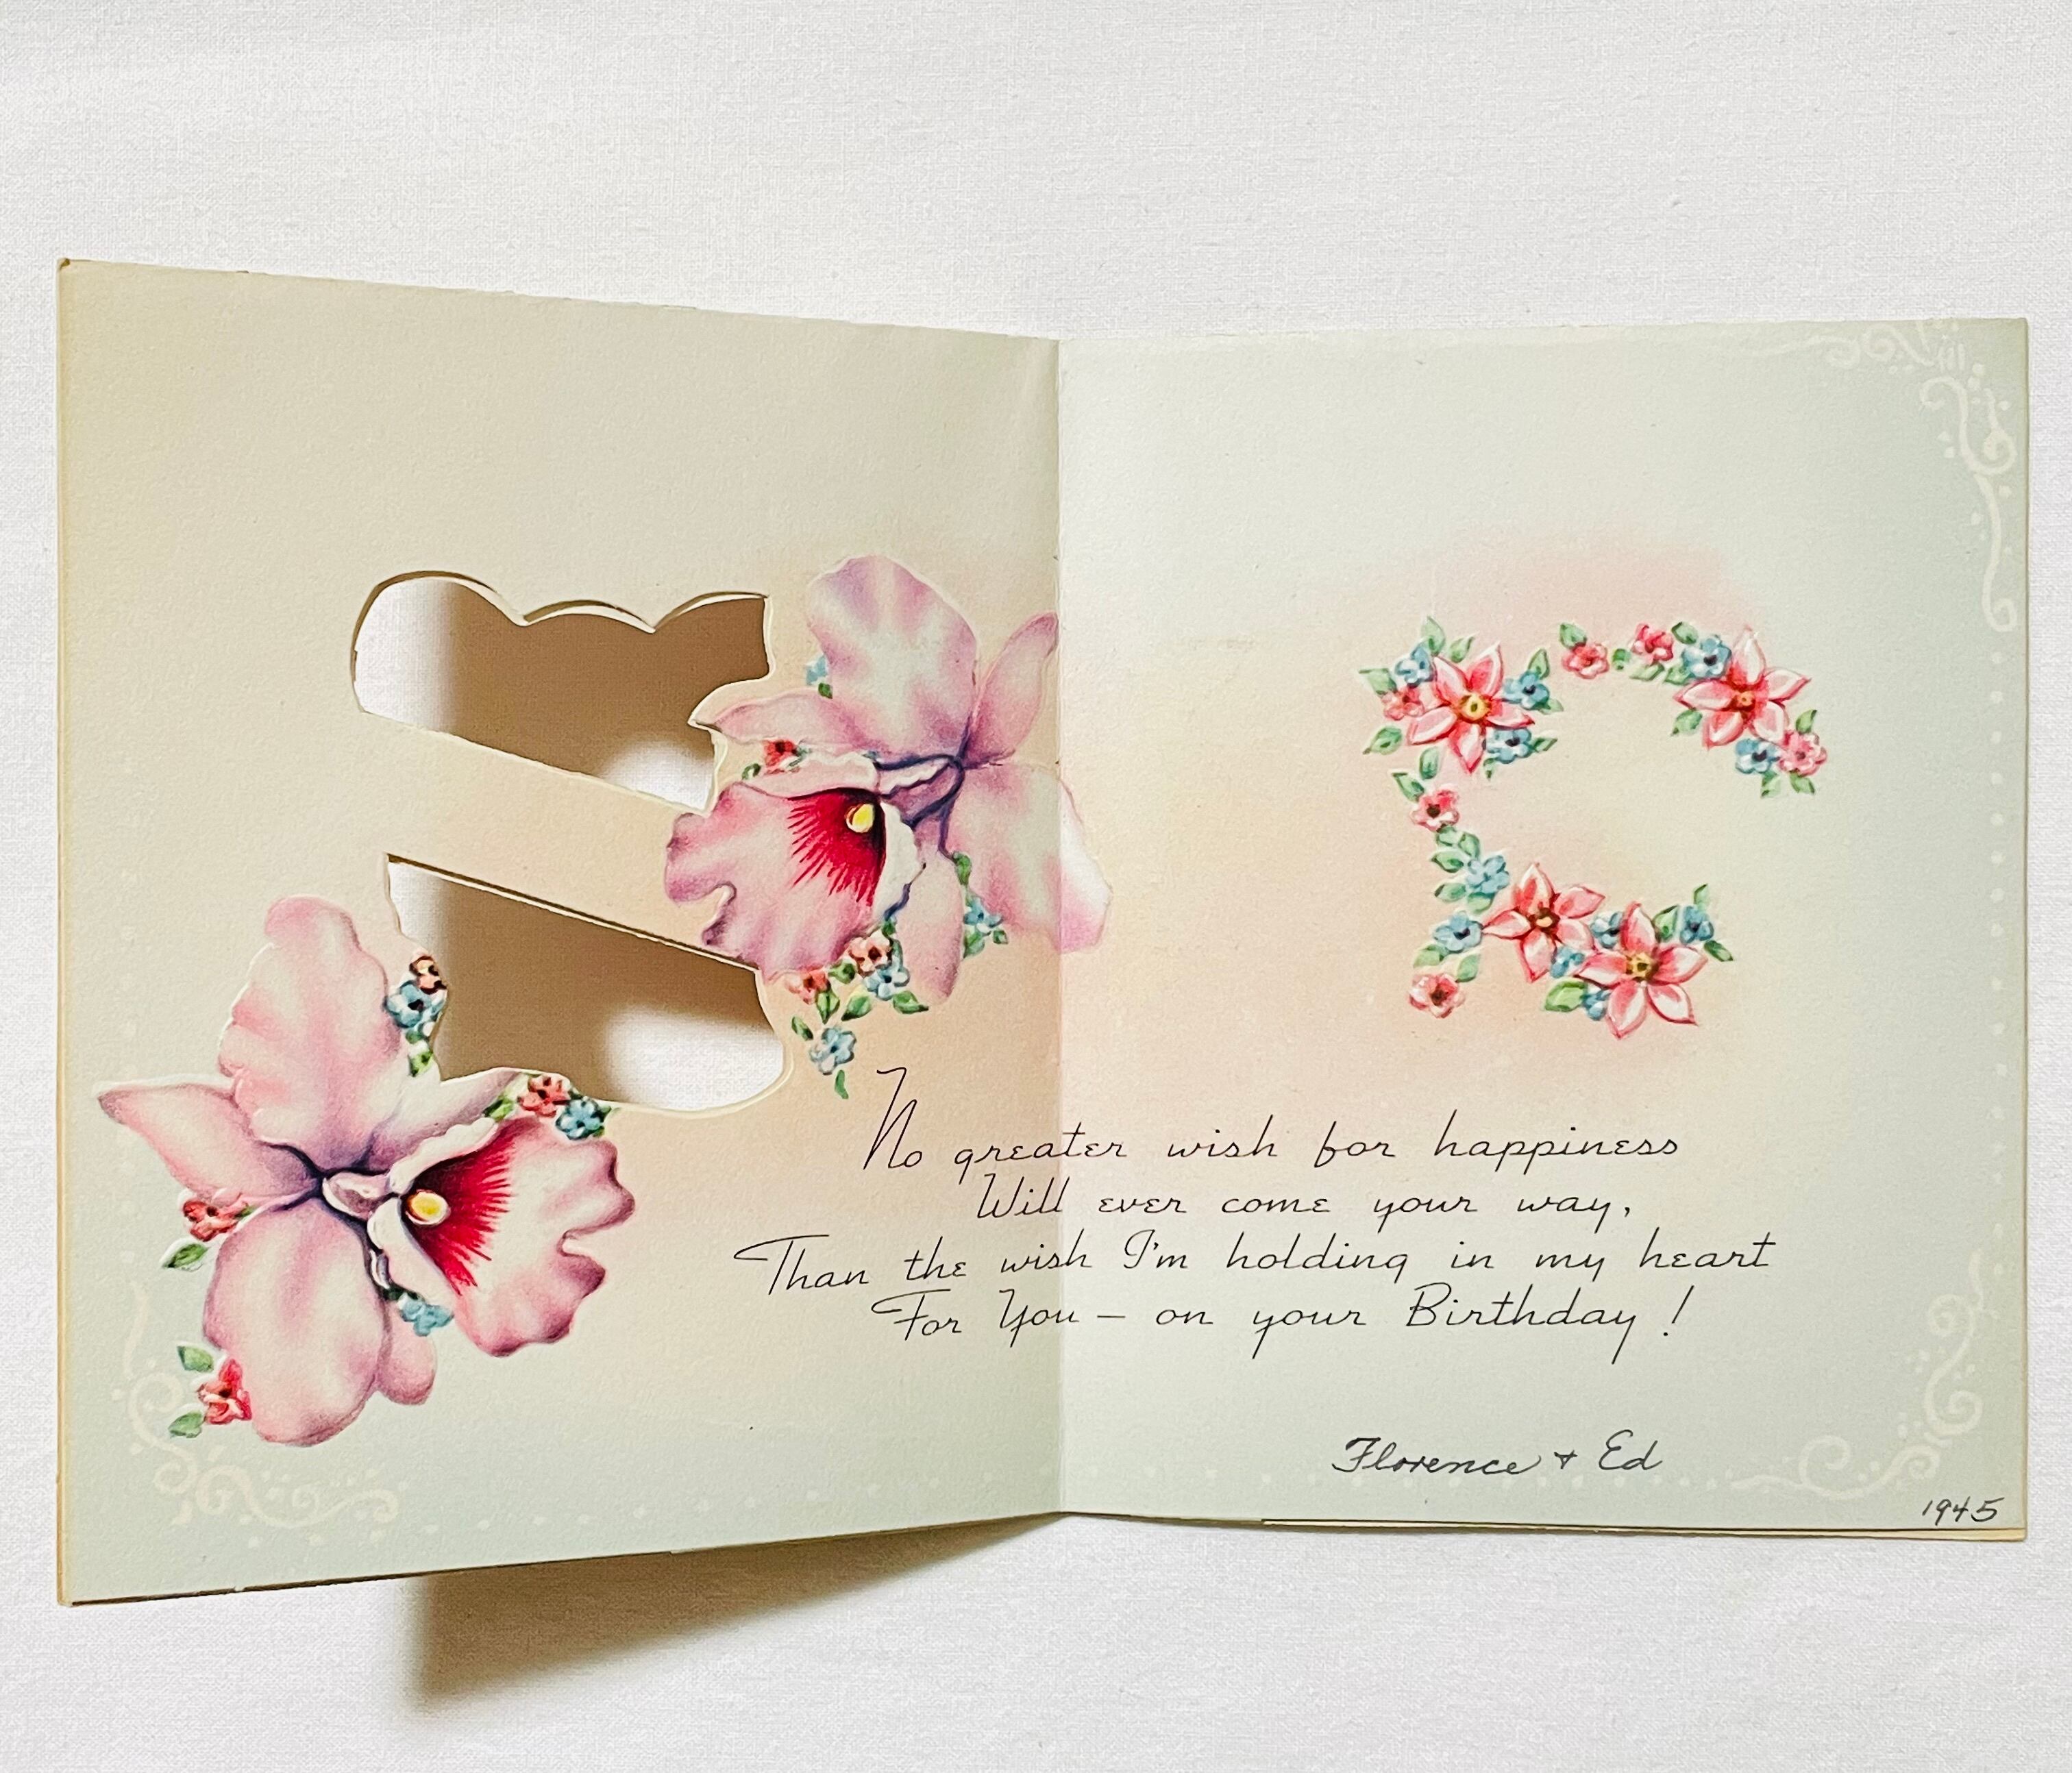 No greater wish for happiness
Will ever come your way,
Than the wish I'm holding in my heart
For You — on your Birthday!
Florence + Ed
1945